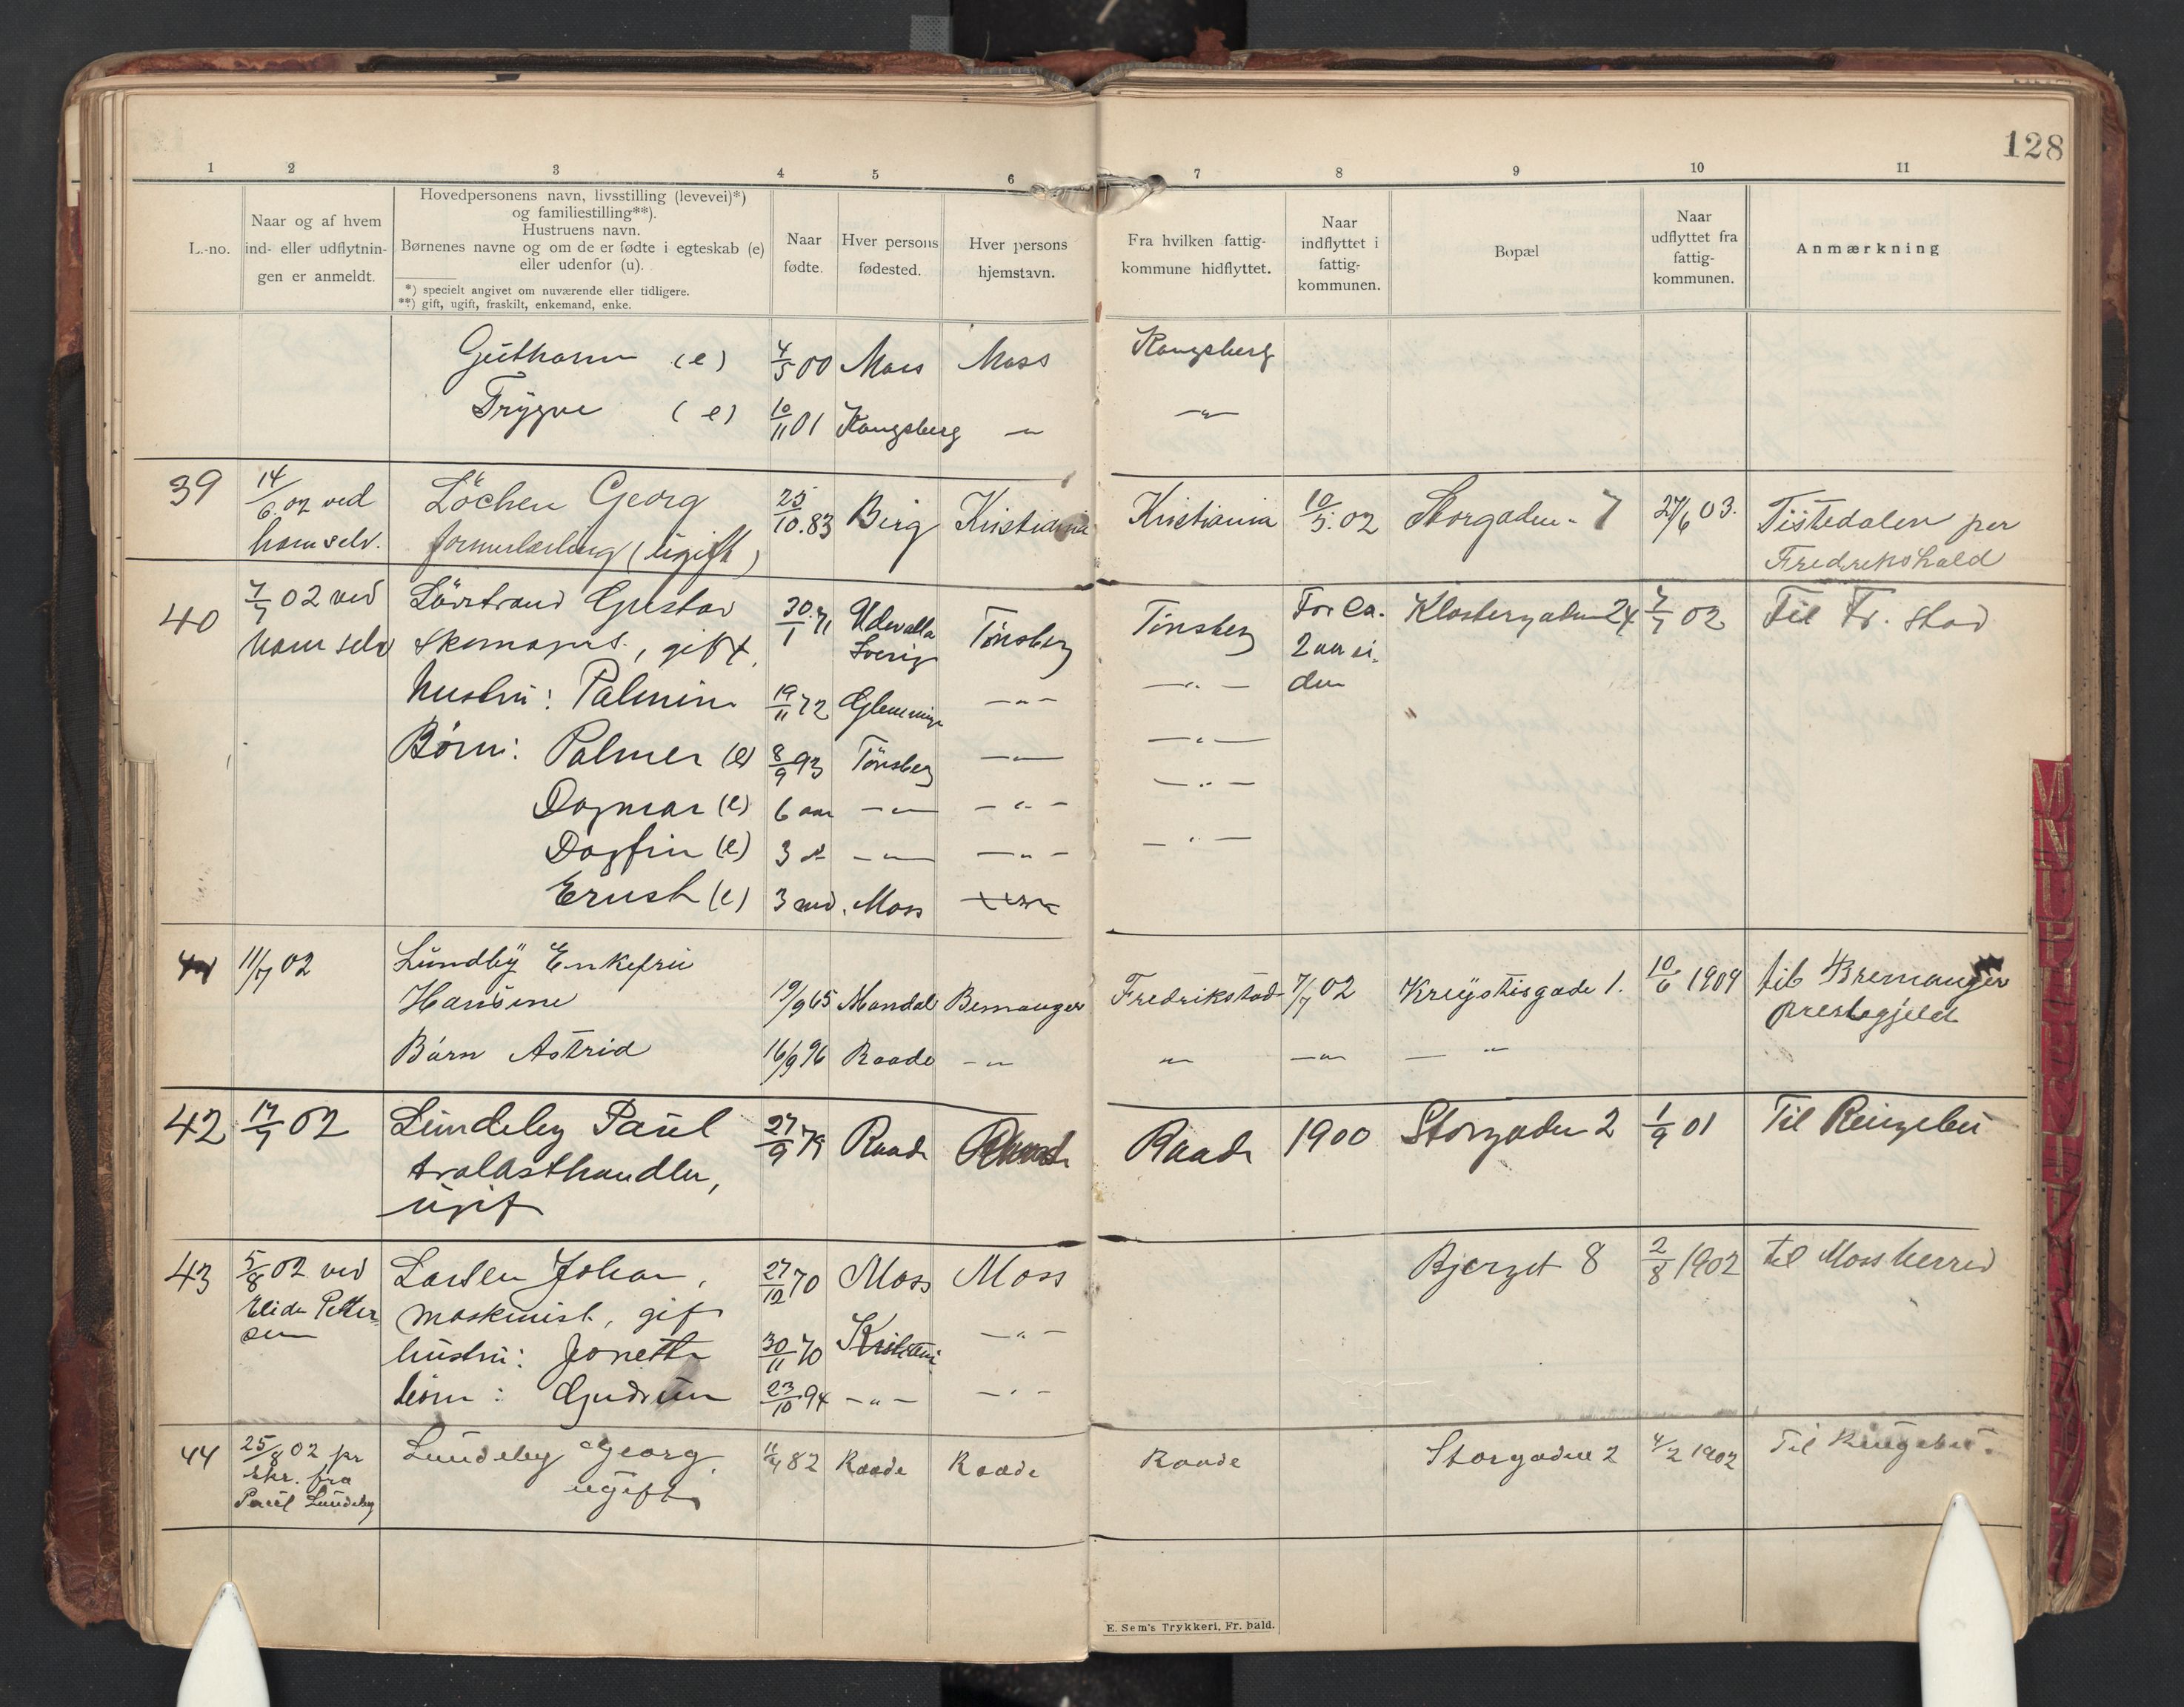 128
1 2 3 4 5 6 7 8 9 10 11
L.-no.
Naar og af hvem
ind- eller udflytnin-
gen er anmeldt.
Hovedpersonens navn, livsstilling (levevei)*)
og familiestilling**).
Hustruens navn.
Børnenes navne og om de er fødte i egteskab (e)
eller udenfor (u).
*) specielt angivet om nuværende eller tidligere.
**) gift, ugift, fraskilt, enkemand, enke.
Naar
fødte.
Hver persons
fødested.
Hver persons
hjemstavn.
Fra hvilken fattig-
kommune hidflyttet.
Naar
indflyttet i
fattig-
kommunen.
Bopæl
Naar
udflyttet fra
fattig-
kommunen.
Anmærkning
Guthorm (e) 4/5 00 Moss Moss Kongsberg
Trygve (e) 10/11 01 Kongsberg — " — " —
39 14/6 02 ved Löchen Georg 25/10 83 Berg Kristiania Kristiania 10/5 02 Storgaden 7 27/6 03. Tistedalen per
ham selv. (ugift) Fredrikshald
40 7/7 02 ved Lövstrand Gustav 30/1 71 Udevalla Tönsberg Tönsberg For ca. Klostergaden 24 7/7 02 Til Fr. stad
ham selv Skomager, gift, Sverig 2 aar si-
hustru: Palmine 19/11 72 Glemminge — " — — " — den
Børn: Palmer (e) 8/9 93 Tönsberg — " — — " —
Dagmar (e) 6 aar — " — — " — — " —
Dagfin (e) 3 " — " — — " — — " —
Ernst (e) 3 md. Moss
41 11/7 02 Lundby Enkefru
Hansine 19/9 65 Mandal Bremanger Fredrikstad 7/7 02 1. 10/6 1909 til Bremanger
prestegjeld
Barn Astrid 16/9 96 Raade — " — " — " — — " —
42 17/7 02 Lundeby Paul 27/9 79 Raade Raade Raade 1900 Storgaden 2 1/9 01 Til Ringebu
trælasthandler,
ugift
43 5/8 02 ved Larsen Johan, 27/12 70 Moss Moss Bjerget 8 2/8 1902 til Moss herred
Elida Petter- maskinist, gift
sen
hustru: Jonette 30/11 70 Kristiania — " —
børn: Gudrun 23/10 94 — " — — " —
44 25/8 02 pr Lundeby Georg, 11/4 82 Raade Raade Raade Storgaden 2 4/2 1902 Til Ringebu.
skr. fra ugift
Paul Lundeby
E. Sem's Trykkeri, Fr. hald.